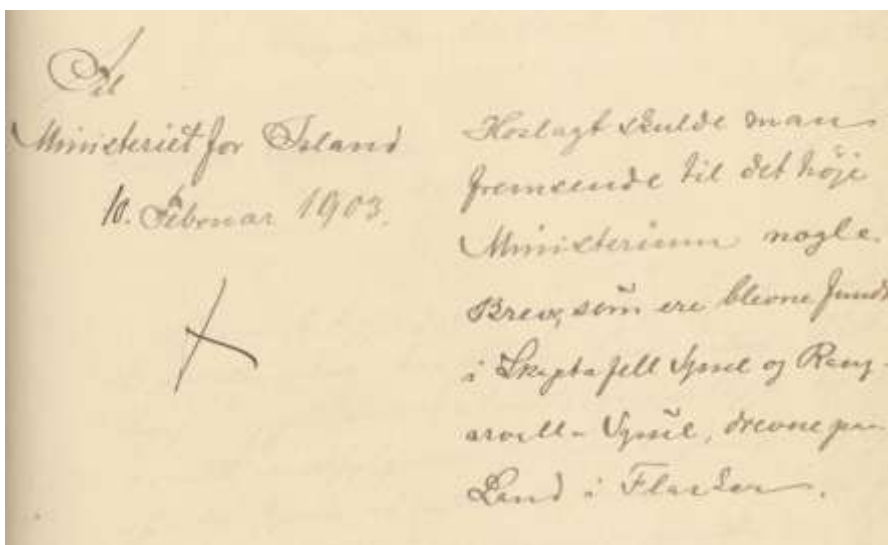 Til
Ministeriet for Island
10. Februar 1903.
Hoslagt skulde man
fremsende til det höje
Ministerium nogle
Breve, som ere blevne fund
i Skaptafell Syssel og Rang-
arvalla Syssel, drevne paa
Land i Flasker.